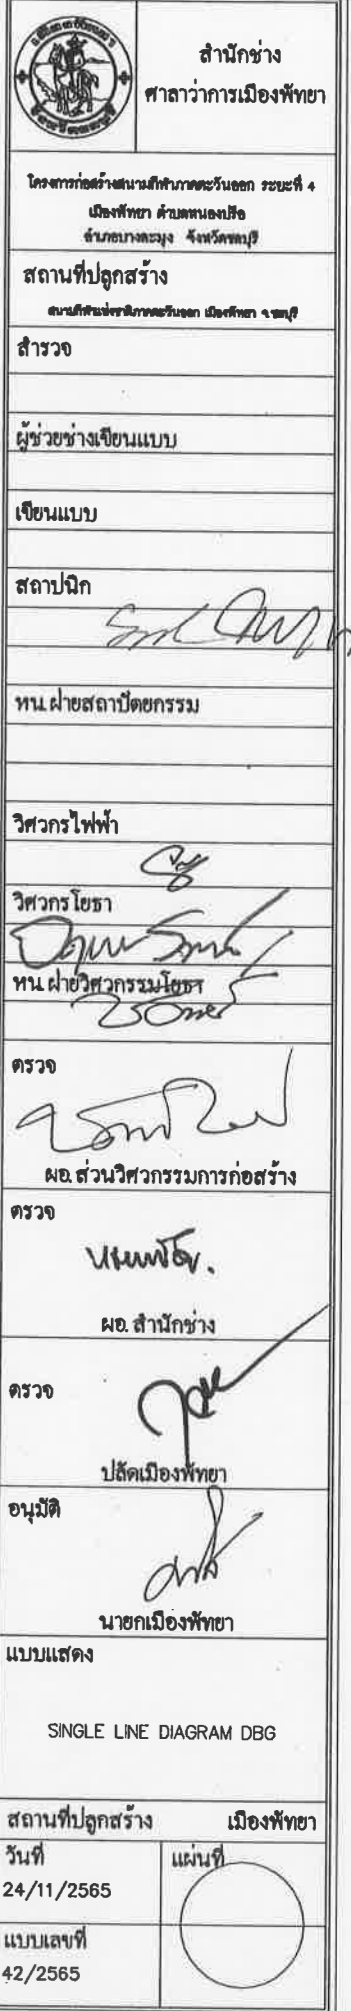 สำนักช่าง
ศาลาว่าการเมืองพัทยา
โครงการก่อสร้างสนามกีฬาภาคตะวันออก ระยะที่ 4
เมืองพัทยา ตำบลหนองปรือ
อำเภอบางละมุง จังหวัดชลบุรี
สถานที่ปลูกสร้าง
สนามกีฬาแห่งชาติภาคตะวันออก เมืองพัทยา จ.ชลบุรี
สำรวจ
ผู้ช่วยช่างเขียนแบบ
เขียนแบบ
สถาปนิก
หน.ฝ่ายสถาปัตยกรรม
วิศวกรไฟฟ้า
วิศวกรโยธา
หน.ฝ่ายวิศวกรรมโยธา
ตรวจ
ผอ.ส่วนวิศวกรรมการก่อสร้าง
ตรวจ
ผอ. สำนักช่าง
ตรวจ
ปลัดเมืองพัทยา
อนุมัติ
นายกเมืองพัทยา
แบบแสดง
SINGLE LINE DIAGRAM DBG
สถานที่ปลูกสร้าง เมืองพัทยา
วันที่ แผ่นที่
24/11/2565
แบบเลขที่
42/2565